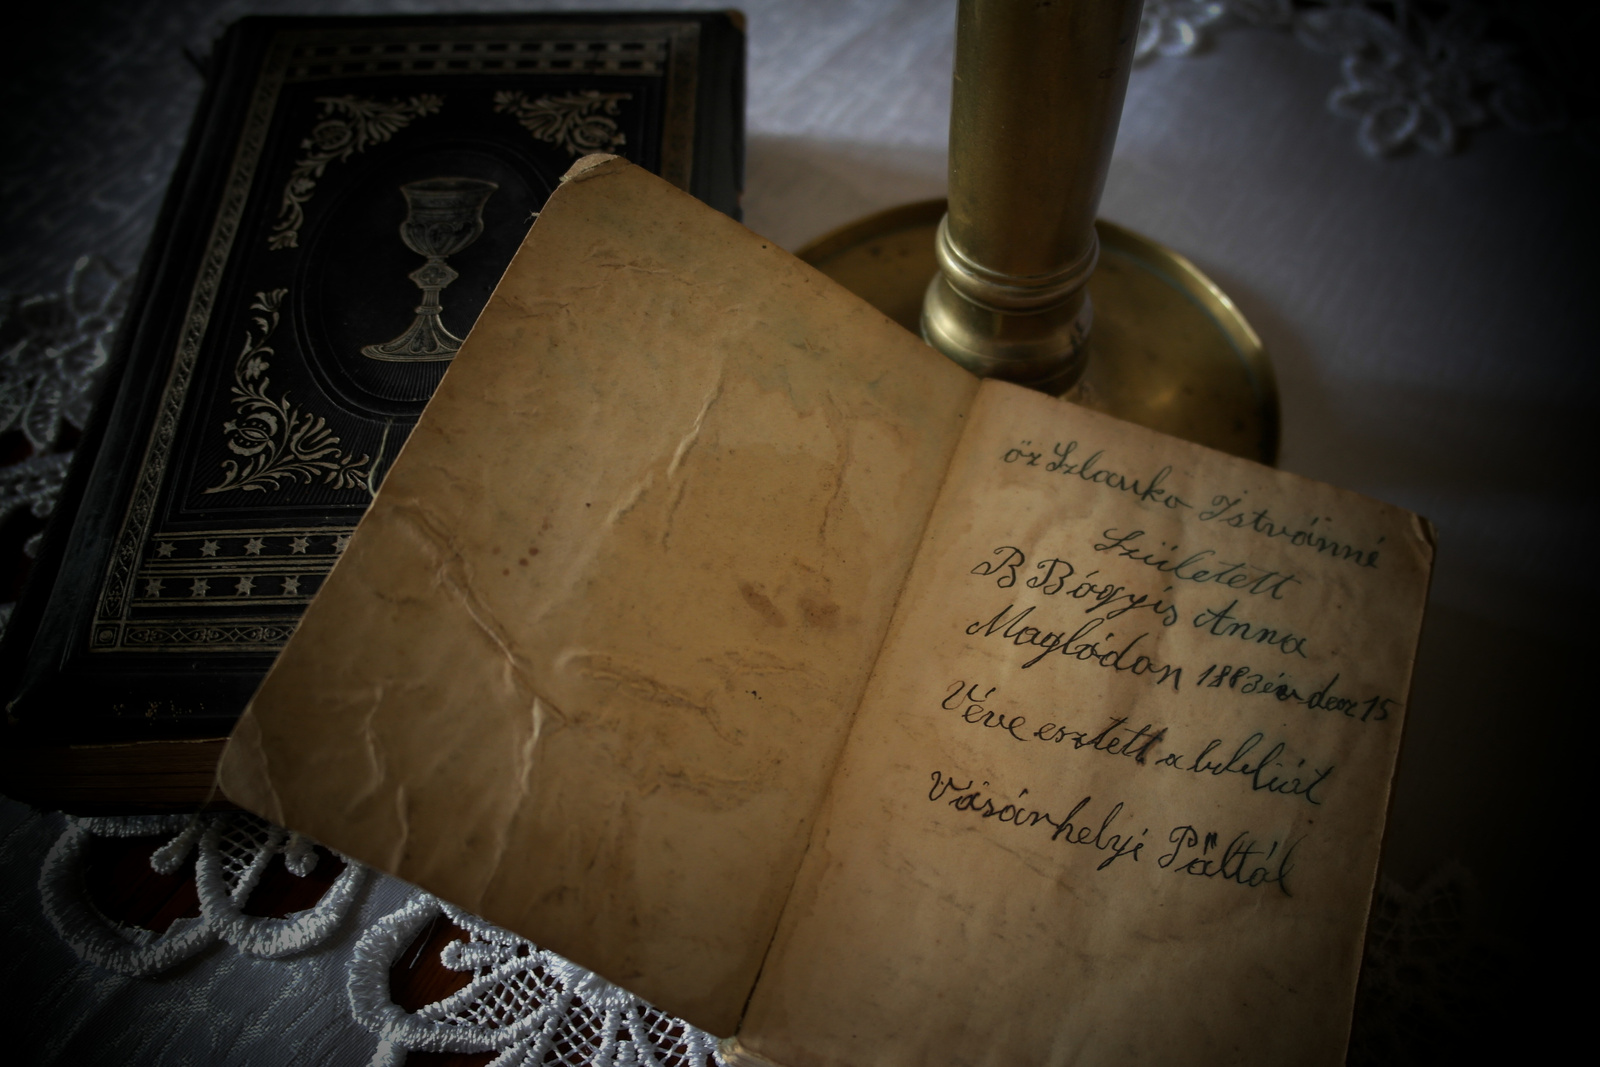 öz Szlauko Istvánné
Született
B Bógyis Anna
Maglódon 1883 én dez 15
Véve esztett a bibliát
Vásárhelyi Páltól